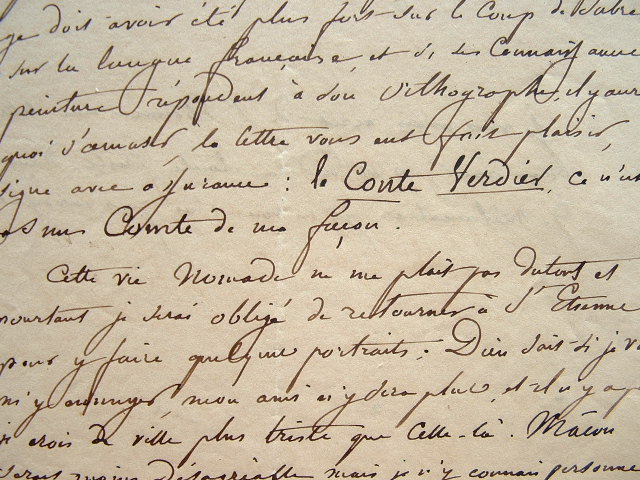 ge doit avoir été plus fort sur le Coup de Sabre
sur la langue française et si ses Connaissance
peinture répondent à son orthographe, il y aura
quoi s'amuser la lettre vous eut fait plaisir,
signe avec assurance : le Comte Verdier, ce n'est
as un Comte de ma façon.
Cette vie Nomade ne me plait pas du tout et
pourtant je serai obligé de retourner à St Etienne
pour y faire quelque portraits. Dieu sait si je v
m'y ennuyer mon ami il y pleu, et il n'y a p
crois de ville plus triste que Celle-là. Mâcon
serait moins désagréable mais je n'y connais personne